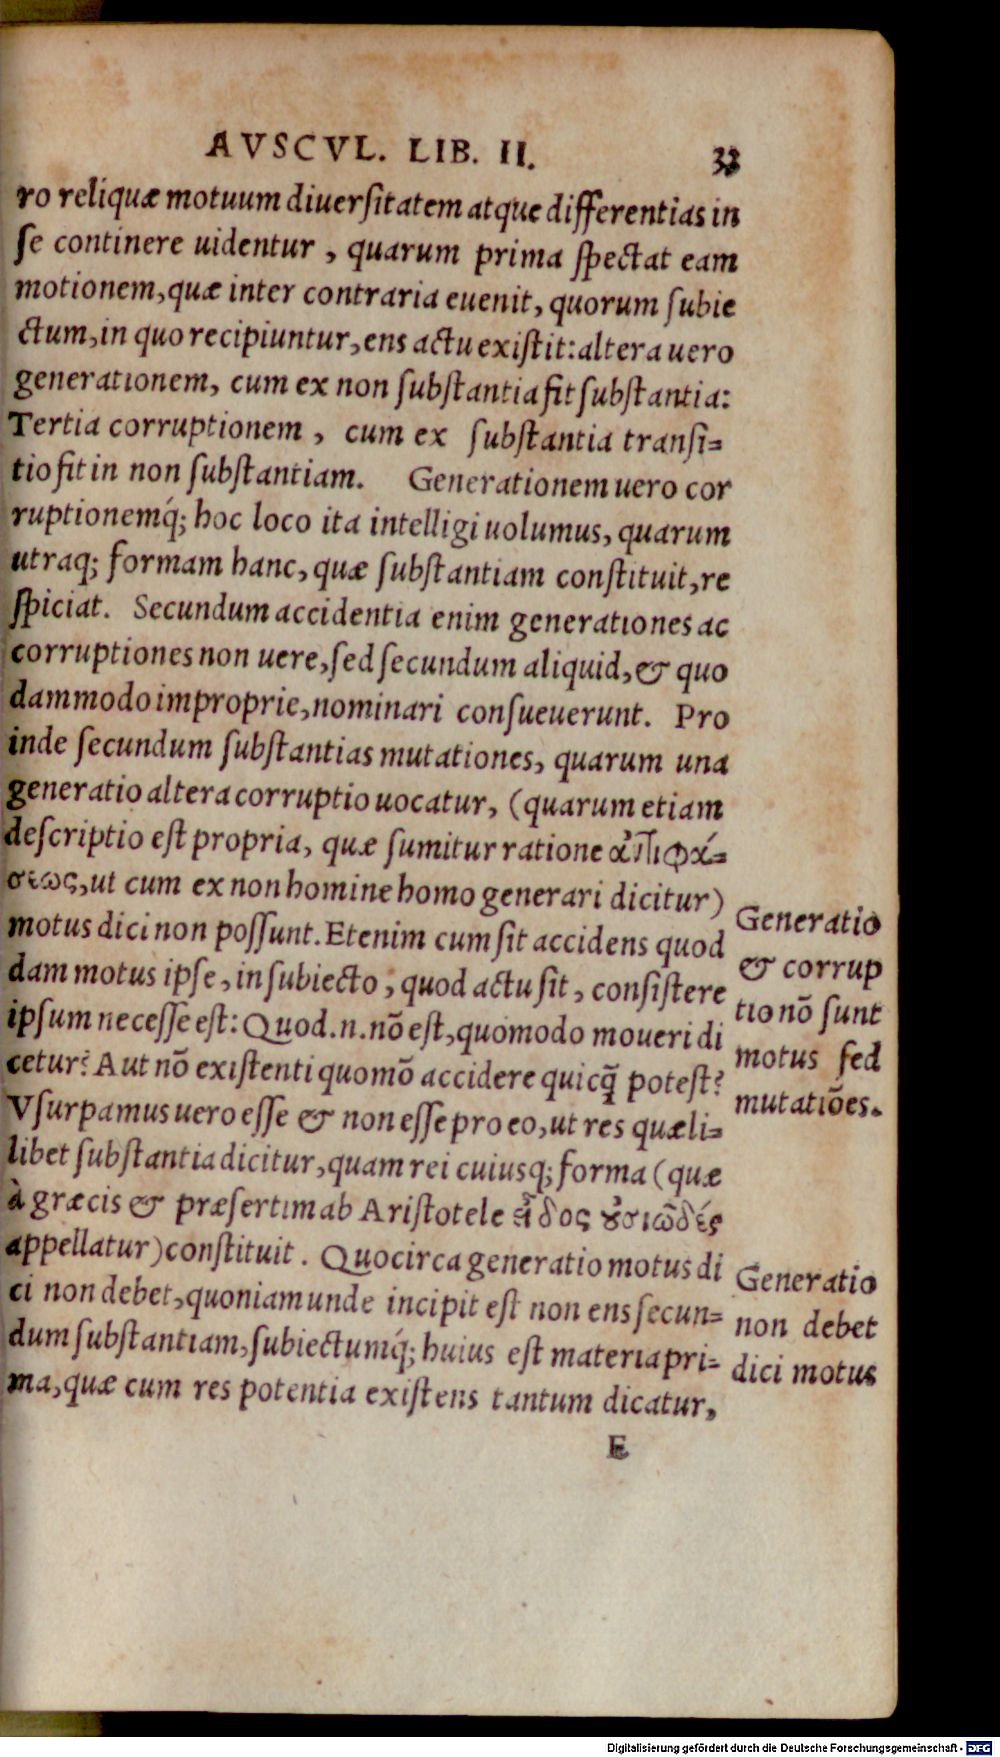 AVSCVL. LIB. II. 33
ro reliquæ motuum diuerſitatem atque differentias in
ſe continere uidentur, quarum prima ſpectat eam
motionem, quæ inter contraria euenit, quorum ſubie
ctum, in quo recipiuntur, ens actu exiſtit: altera uero
generationem, cum ex non ſubſtantia fit ſubſtantia:
Tertia corruptionem, cum ex ſubſtantia tranſi=
tio fit in non ſubſtantiam. Generationem uero cor
ruptionemq́; hoc loco ita intelligi uolumus, quarum
utraq; formam hanc, quæ ſubſtantiam conſtituit, re
ſpiciat. Secundum accidentia enim generationes ac
corruptiones non uere, ſed ſecundum aliquid, & quo
dammodo improprie, nominari conſueuerunt. Pro
inde ſecundum ſubſtantias mutationes, quarum una
generatio altera corruptio uocatur, (quarum etiam
deſcriptio eſt propria, quæ ſumitur ratione ἀντιφά=
σεως, ut cum ex non homine homo generari dicitur)
motus dici non poſſunt. Etenim cum ſit accidens quod
dam motus ipſe, in ſubiecto, quod actu ſit, conſiſtere
ipſum neceſſe eſt: Quod .n. nō eſt, quomodo moueri di
cetur? Aut nō exiſtenti quomō accidere quicq̄ poteſt?
Vſurpamus uero eſſe & non eſſe pro eo, ut res quæli=
libet ſubſtantia dicitur, quam rei cuiusq; forma (quæ
à græcis & præſertim ab Ariſtotele εἶδος οὐσιῶδές
appellatur) conſtituit. Quocirca generatio motus di
ci non debet, quoniam unde incipit eſt non ens ſecun=
dum ſubſtantiam, ſubiectumq́; huius eſt materia pri=
ma, quæ cum res potentia exiſtens tantum dicatur,
E
Generatio
& corrup
tio nō ſunt
motus ſed
mutatiōes.
Generatio
non debet
dici motus
Digitalisierung gefördert durch die Deutsche Forschungsgemeinschaft - DFG